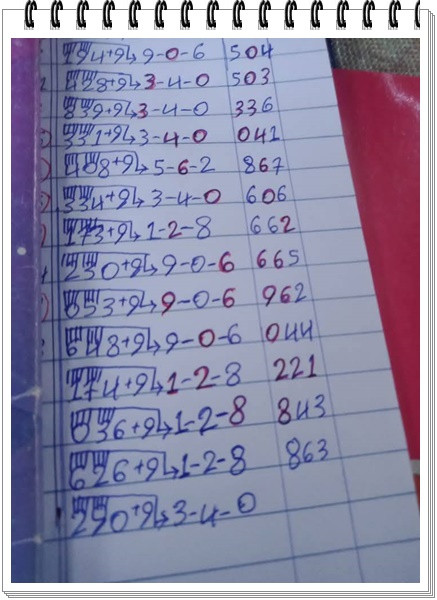 194+9→9-0-6 504
428+9→3-4-0 503
839+9→3-4-0 336
331+9→3-4-0 041
408+9→5-6-2 867
334+9→3-4-0 606
173+9→1-2-8 662
230+9→9-0-6 665
053+9→9-0-6 962
648+9→9-0-6 044
174+9→1-2-8 221
036+9→1-2-8 843
626+9→1-2-8 863
290+9→3-4-0